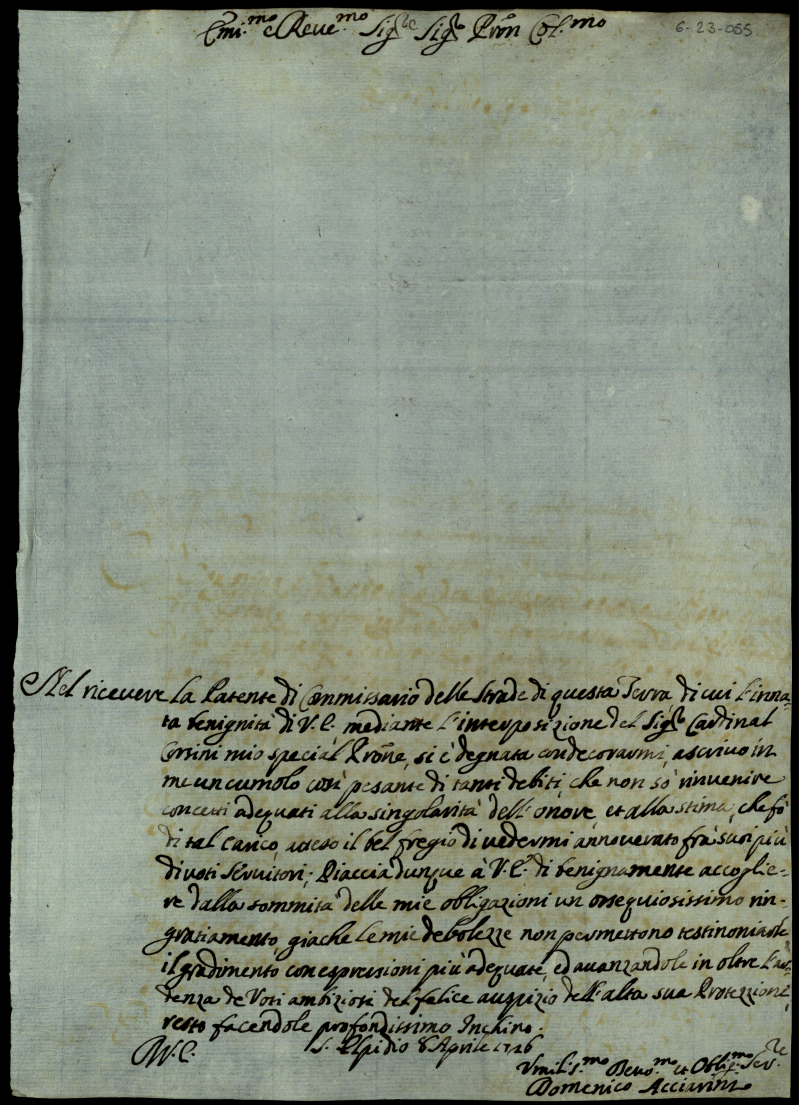 Emi.mo e Reve.mo Sig.re Sig.re Pron Col.mo
6-23-055
Nel ricevere la Patente di Commissario delle Strade di questa Terra, di cui l'inna-
ta benignità di V.E. mediante l'interposizione del Sig.r Cardinal
Corsini mio special Prone, si è degnata condecorarmi, ascrivo in
me un cumolo così pesante di tanti debiti, che non sò rinvenire
concetti adequati alla singolarità dell'onore, et alla stima, che fò
di tal carico, atteso il bel fregio di vedermi annoverato frà suoi più
divoti servitori; Piaccia dunque à V.E. di benignamente accoglie-
re dalla sommità delle mie obligazioni un ossequiosissimo rin-
gratiamento, giache le mie debolezze non permettono testimoniarle
il gradimento con espressioni più adequate, ed avanzandole in oltre l'ar-
denza de Voti ambiziosi del felice auspizio dell'alta sua Protezzione,
resto facendole profondissimo Inchino.
S. Elpidio 8 Aprile 1726
Umiliss.mo Devo.mo et Oblig.mo Ser.re
Domenico Acciarini